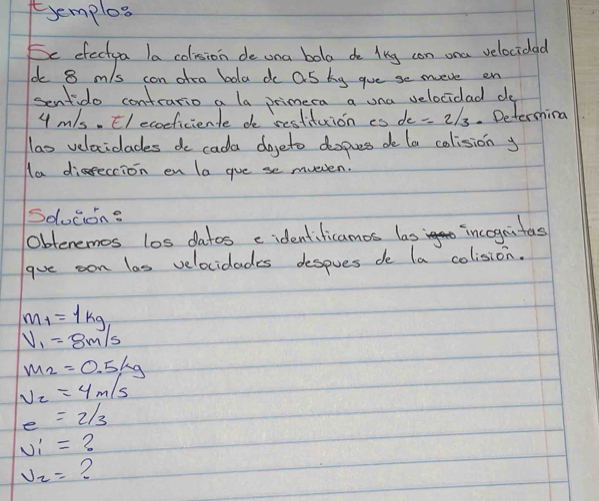 Ejemplo:
Se efectua la colisión de una bola de 1kg con una velocidad
de 8 m/s con otra bola de 0.5 kg que se mueve en
sentido contrario a la primera a una velocidad de
4 m/s. El ecoeficiente de restitución es de = 2/3. Determina
las velocidades de cada objeto despues de la colisión y
la dirección en la que se mueven.
Solución:
Obtenemos los datos e identificamos las incognitas
que son las velocidades despues de la colisión.
m1 = 1kg
V1 = 8m/s
m2 = 0.5kg
v2 = 4m/s
e = 2/3
vi = ?
v2 = ?